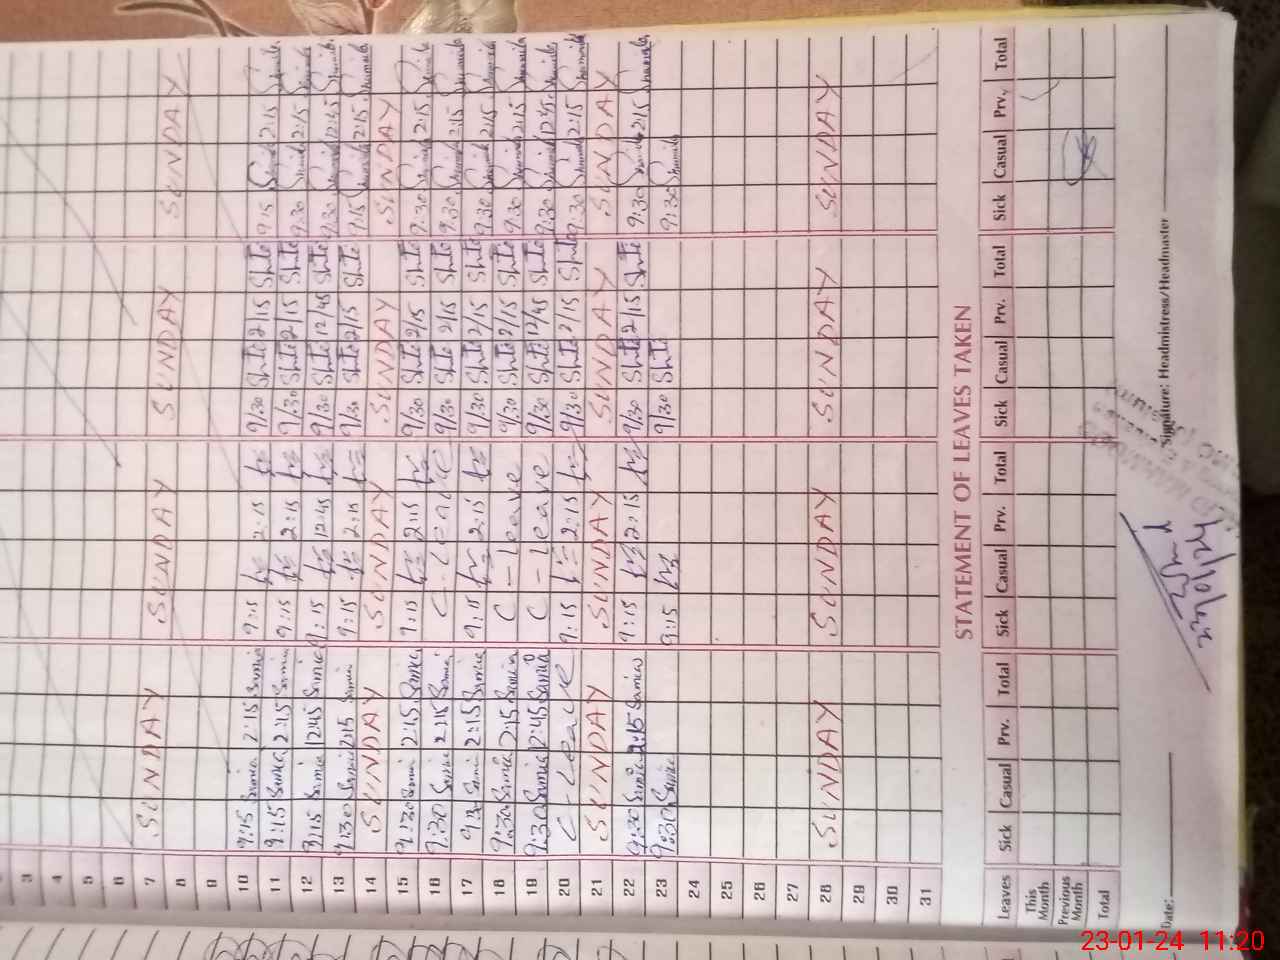 3
4
5
6
7 SUNDAY SUNDAY SUNDAY SUNDAY
8
9
10 9:15 Samia 2:15 Samia 9:15 2:15 9/30 Shte 2/15 Shte 9:15 Shumila 2:15 Shumila
11 9:15 Samia 2:15 Samia 9:15 2:15 9/30 Shte 2/15 Shte 9:30 Shumila 2:15 Shumila
12 9:15 Samia 12:45 Samia 9:15 12:45 9/30 Shte 12/45 Shte 9:30 Shumila 12:45 Shumila
13 9:30 Samia 2:15 Samia 9:15 2:15 9/30 Shte 2/15 Shte 9:15 Shumila 2:15 Shumila
14 SUNDAY SUNDAY SUNDAY SUNDAY
15 9:30 Samia 2:15 Samia 9:15 2:15 9/30 Shte 2/15 Shte 9:30 Shumila 2:15 Shumila
16 9:30 Samia 2:15 Samia C-leave 9/30 Shte 2/15 Shte 9:30 Shumila 2:15 Shumila
17 9:30 Samia 2:15 Samia 9:15 2:15 9/30 Shte 2/15 Shte 9:30 Shumila 2:15 Shumila
18 9:30 Samia 2:15 Samia C-leave 9/30 Shte 2/15 Shte 9:30 Shumila 2:15 Shumila
19 9:30 Samia 12:45 Samia C-leave 9/30 Shte 12/45 Shte 9:30 Shumila 12:45 Shumila
20 C-leave 9:15 2:15 9/30 Shte 2/15 Shte 9:30 Shumila 2:15 Shumila
21 SUNDAY SUNDAY SUNDAY SUNDAY
22 9:30 Samia 2:15 Samia 9:15 2:15 9/30 Shte 2/15 Shte 9:30 Shumila 2:15 Shumila
23 9:30 Samia 9:15 9/30 Shte 9:30 Shumila
24
25
26
27
28 SUNDAY SUNDAY SUNDAY SUNDAY
29
30
31
STATEMENT OF LEAVES TAKEN
Leaves Sick Casual Prv. Total Sick Casual Prv. Total Sick Casual Prv. Total Sick Casual Prv. Total
This Month
Previous Month
Total
23/01/24
Date: Signature: Headmistress/Headmaster
23-01-24 11:20